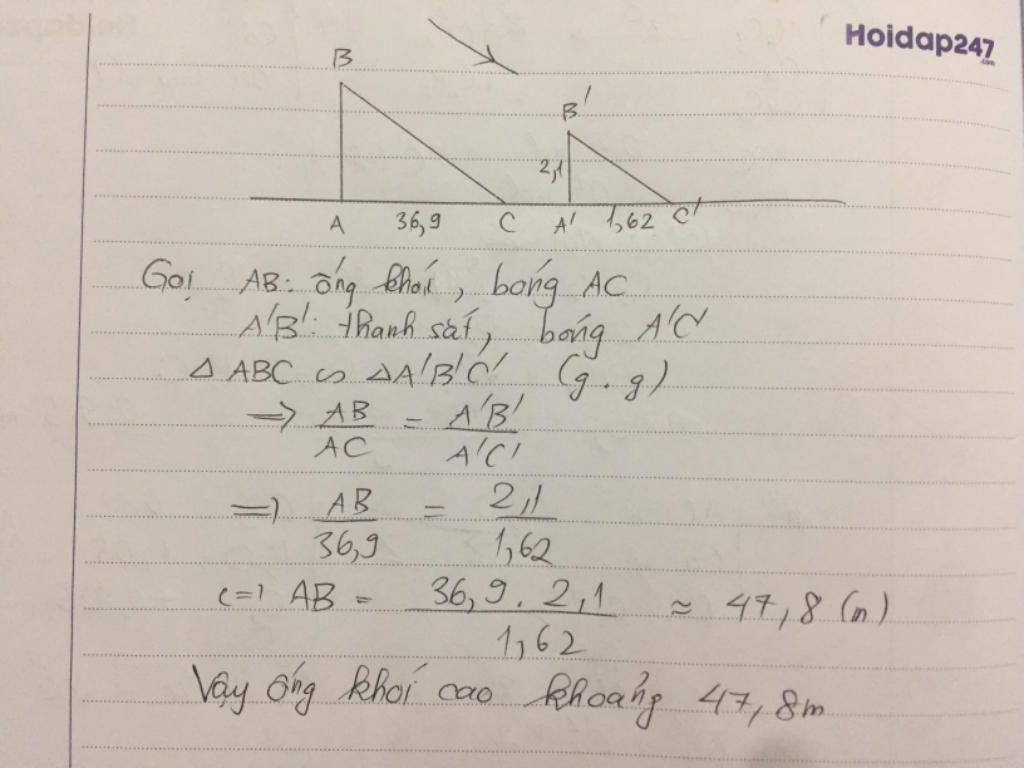 Hoidap247
.com
B
B'
2,1
A 36,9 C A' 1,62 C'
Gọi AB: ống khói, bóng AC
A'B': thanh sắt, bóng A'C'
Δ ABC ∽ ΔA'B'C' (g.g)
=> AB/AC = A'B'/A'C'
=> AB/36,9 = 2,1/1,62
<=> AB = 36,9.2,1/1,62 ≈ 47,8 (m)
Vậy ống khói cao khoảng 47,8m